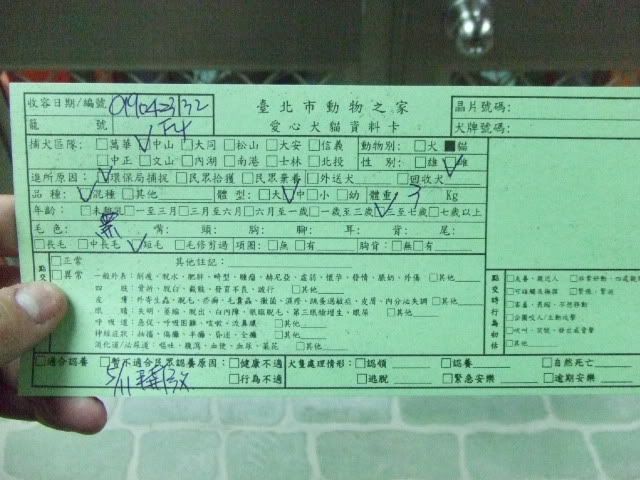 收容日期/編號 090423132
臺北市動物之家
晶片號碼:
籠號 F4
愛心犬貓資料卡
犬牌號碼:
捕犬區隊: □萬華 ☑中山 □大同 □松山 □大安 □信義 動物別: □犬 ■貓
□中正 □文山 □內湖 □南港 □士林 □北投 性別: □雄 ☑雌
進所原因: ☑環保局捕捉 □民眾拾獲 □民眾棄養 □外送犬 □回收犬
品種: ☑混種 □其他 體型: □大 ☑中 □小 □幼 體重: 3 Kg
年齡: □未離乳 □一至三月 □三月至六月 □六月至一歲 □一歲至二歲 ☑二至七歲 □七歲以上
毛色: 黑 嘴: 頭: 胸: 腳: 耳: 背: 尾:
□長毛 □中長毛 ☑短毛 □毛修剪過 項圈: □無 □有 胸背: □無 □有
點交
□正常 其他註記:
□異常
一般外表: 削瘦、脫水、肥胖、畸型、腫瘤、赫尼亞、虛弱、懷孕、發情、脫肛、外傷 □其他
四肢: 骨折、脫臼、截肢、發育不良、跛行 □其他
皮膚: 外寄生蟲、脫毛、疥癬、毛囊蟲、黴菌、濕疹、跳蚤過敏症、皮膚、內分泌失調 □其他
眼睛: 失明、萎縮、脫出、白內障、眼瞼脫毛、第三眼瞼增生、眼屎 □其他
呼吸道: 急促、呼吸困難、咳嗽、流鼻膿 □其他
神經症狀: 抽搐、傷癱、半癱、昏迷、全癱 □其他
消化道/泌尿道: 嘔吐、腹瀉、血便、血尿、菜花 □其他
點交時行為初估
□友善、親近人
□可碰觸及撫摸 □緊張、緊迫
□害羞、畏縮、不想移動
□企圖咬人/主動攻擊
□吹叫、哭號、發出威脅聲
□其他
□適合認養 □暫不適合民眾認養原因: □健康不適 犬隻處理情形: □認領 □認養 □自然死亡
□行為不適 □逃脫 □緊急安樂 □逾期安樂
5/11